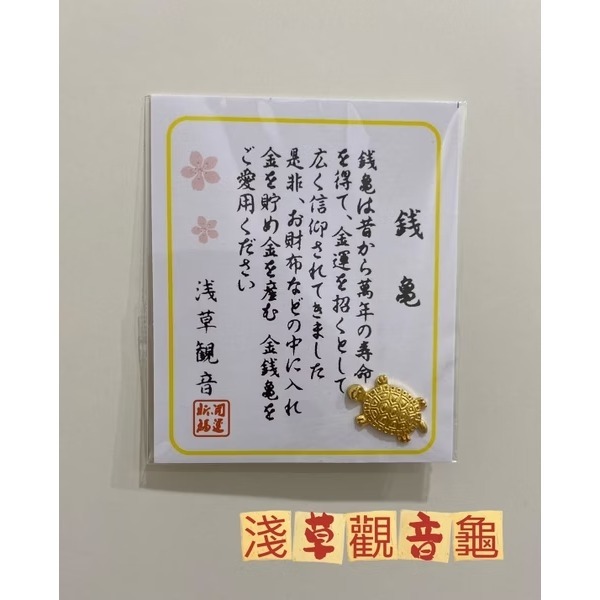 銭亀
銭亀は昔から萬年の寿命
を得て、金運を招くとして
広く信仰されてきました
是非、お財布などの中に入れ
金を貯め金を産む 金銭亀を
ご愛用ください
浅草観音
開運
祈福
淺草觀音龜